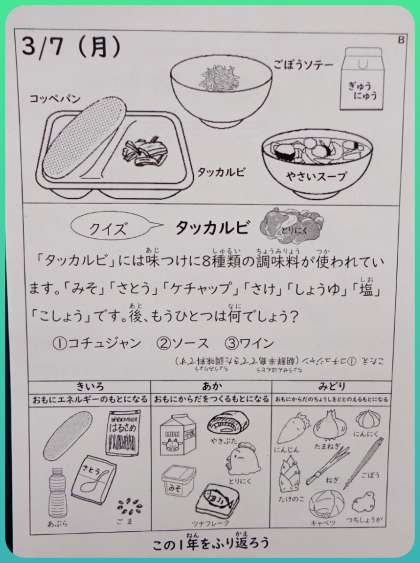 3/7（月）
B
ごぼうソテー
ぎゅうにゅう
コッペパン
タッカルビ
やさいスープ
クイズ
タッカルビ
とりにく
「タッカルビ」には味つけに8種類の調味料が使われてい
ます。「みそ」「さとう」「ケチャップ」「さけ」「しょうゆ」「塩」
「こしょう」です。後、もうひとつは何でしょう？
①コチュジャン　②ソース　③ワイン
こたえ ①コチュジャン（朝鮮半島でできた調味料です）
きいろ
おもにエネルギーのもとになる
あか
おもにからだをつくるもとになる
みどり
おもにからだのちょうしをととのえるもとになる
はるさめ
さとう
あぶら
ごま
やきぶた
とりにく
みそ
ツナフレーク
にんじん
たまねぎ
にんにく
たけのこ
ねぎ
ごぼう
キャベツ
つちしょうが
この1年をふり返ろう